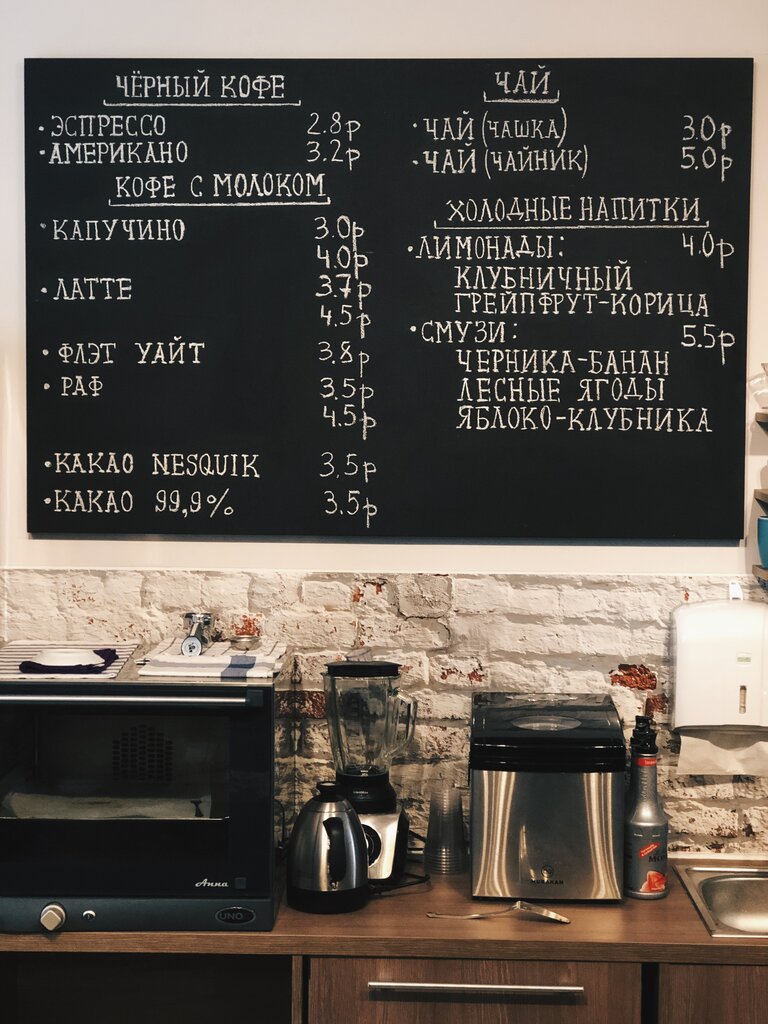 ЧЁРНЫЙ КОФЕ
•ЭСПРЕССО 2.8р
•АМЕРИКАНО 3.2р
КОФЕ С МОЛОКОМ
•КАПУЧИНО 3.0р
4.0р
•ЛАТТЕ 3.7р
4.5р
•ФЛЭТ УАЙТ 3.8р
•РАФ 3.5р
4.5р
•КАКАО NESQUIK 3,5р
•КАКАО 99,9% 3.5р
ЧАЙ
•ЧАЙ (ЧАШКА) 3.0р
•ЧАЙ (ЧАЙНИК) 5.0р
ХОЛОДНЫЕ НАПИТКИ
•ЛИМОНАДЫ: 4.0р
КЛУБНИЧНЫЙ
ГРЕЙПФРУТ-КОРИЦА
•СМУЗИ: 5.5р
ЧЕРНИКА-БАНАН
ЛЕСНЫЕ ЯГОДЫ
ЯБЛОКО-КЛУБНИКА
Anna
UNO